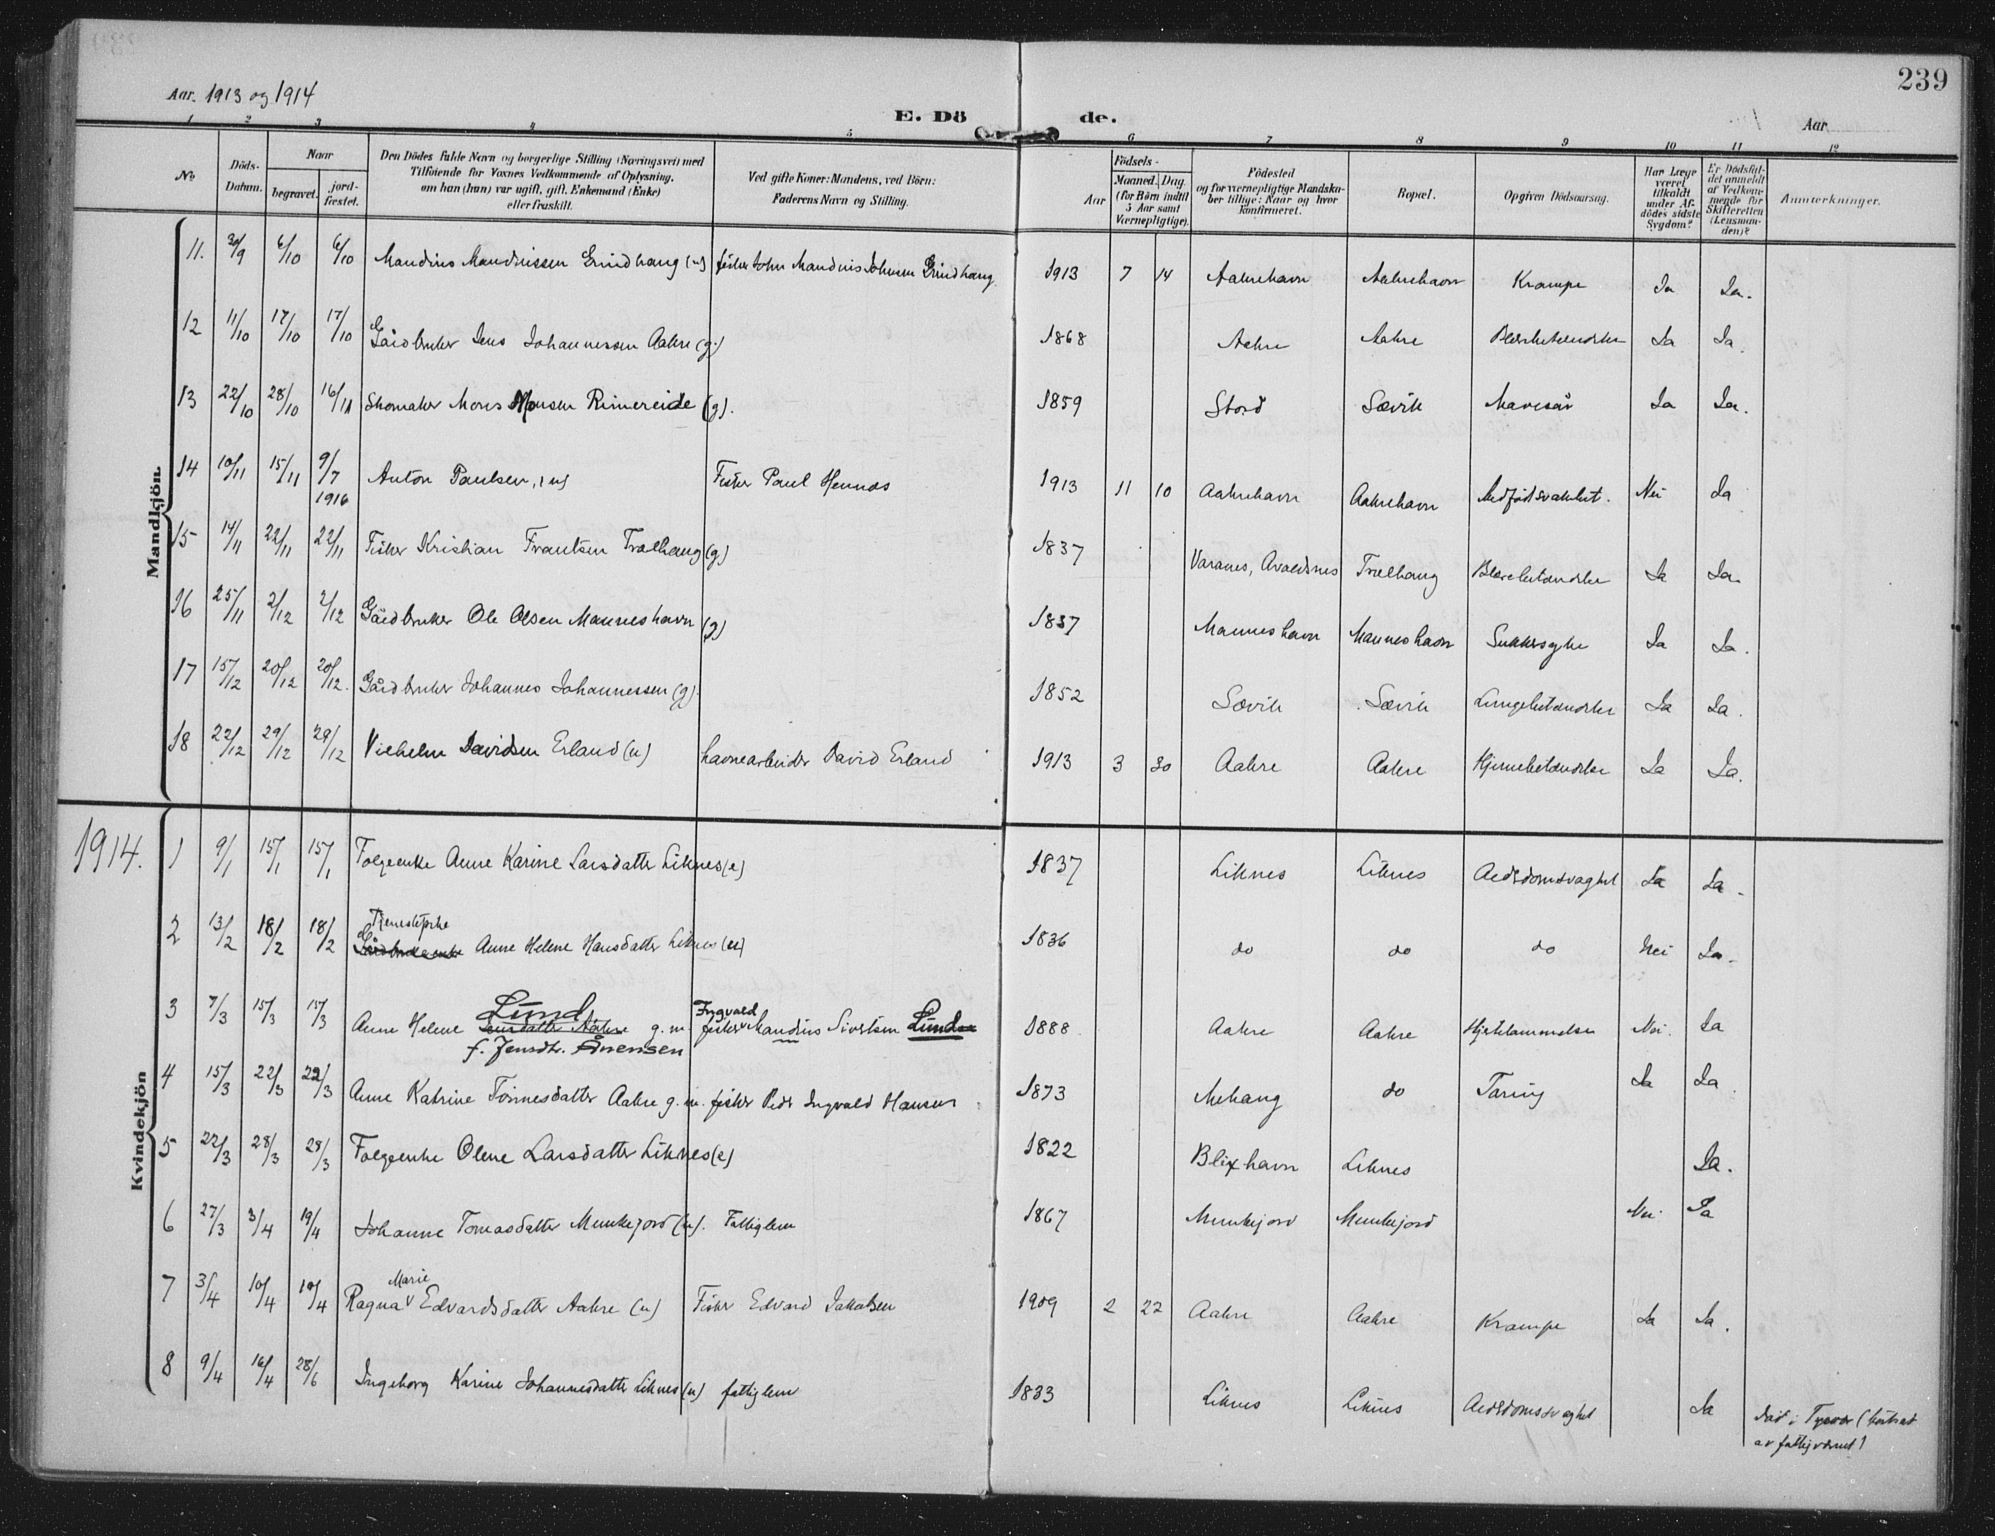 239
Aar. 1913 og 1914
E. Dö de.
Aar
1 2 3 4 5 6 7 8 9 10 11 12
No
Döds-Datum.
Naar
begravet.
jord-fæstet.
Den Dödes fulde Navn og borgerlige Stilling (Næringsvei) med
Tilföiende for Voxnes Vedkommende af Oplysning,
om han (hun) var ugift, gift, Enkemand (Enke)
eller fraskilt.
Ved gifte Koner: Mandens, ved Börn:
Faderens Navn og Stilling.
Aar
Födsels-
Maaned. Dag.
(for Börn indtil
5 Aar samt
Værnepligtige).
Födested
og for værnepligtige Mandska-
ber tillige: Naar og hvor
konfirmeret.
Bopæl.
Opgiven Dödsaarsag.
Har Læge
været
tilkaldt
under Af-
dödes sidste
Sygdom?
Er Dödsfal-
det anmeldt
af Vedkom-
mende for
Skifteretten
(Lensman-
den)?
Anmærkninger.
Mandkjön.
11. 30/9 6/10 6/10 Mandius Mandiussen Grindhaug (u) fisker John Mandius Johnsen Grindhaug 1913 7 14 Aakrehavn Aakrehavn Krampe Ja Ja.
12 11/10 17/10 17/10 Gårdbruker Jens Johannessen Aakre (g) 1868 Aakre Aakre Blærebetændelse Ja Ja.
13 22/10 28/10 16/11 Skomaker Mons Monsen Rimereide (g). 1859 Stord Sævik Mavesår Ja Ja.
14 10/11 15/11 9/7 1916 Anton Paulsen, (u) Fisker Paul Hennøs 1913 11 10 Aakrehavn Aakrehavn Medfødt svakhet. Nei Ja
15 14/11 22/11 22/11 Fisker Kristian Frantsen Trælhaug (g) 1837 Varanes, Avaldsnes Trælhaug Blærebetændelse Ja Ja.
16 25/11 2/12 2/12 Gårdbruker Ole Olsen Manneshavn (g) 1837 Manneshavn Manneshavn Sukkersyke Ja Ja.
17 15/12 20/12 20/12. Gårdbruker Johannes Johannessen (g). 1852 Sævik Sævik Lungebetændelse Ja Ja.
18 22/12 29/12 29/12 Vilhelm Davidsen Erland (u) havnearbeider David Erland 1913 3 30 Aakre Aakre Hjernebetændelse Ja Ja.
1914.
Kvindekjön
1 9/1 15/1 15/1 Folgeenke Anne Karine Larsdatter Liknes (e) 1837 Liknes Liknes Alderdomsvaghet Ja Ja.
Tjenestepike
2 13/2 18/2 18/2 Gårdbrukerenke Anne Helene Hansdatter Liknes (u) 1836 do do do Nei Ja.
Lund Ingvald
3 7/3 15/3 15/3 Anne Helene Jensdatter Aakre g. m. fisker Mandius Sivertsen Lund 1888 Aakre Aakre Hjertelammelse Nei. Ja
f. Jensdtr.
4 15/3 22/3 22/3 Anne Katrine Tønnesdatter Aakre g. m. fisker Peder Ingvald Hansen 1873 Mehaug do Tæring Ja Ja
5 22/3 28/3 28/3 Folgeenke Olene Larsdatter Liknes (e) 1822 Blixhavn Liknes Ja.
6 27/3 3/4 19/4 Johanne Tomasdatter Munkejord (u). Fattiglem 1867 Munkejord Munkejord Nei. Ja
Marie
7 3/4 10/4 19/4 Ragna Edvardsdatter Aakre (u) Fisker Edvard Jakobsen 1909 2 22 Aakre Aakre Krampe Ja Ja.
8 9/4 16/4 28/6 Ingeborg Karine Johannesdatter Liknes (u) fattiglem 1833 Liknes Liknes Alderdomssvaghet Ja død i Tysvær (bortsat
av fattigvæsnet)